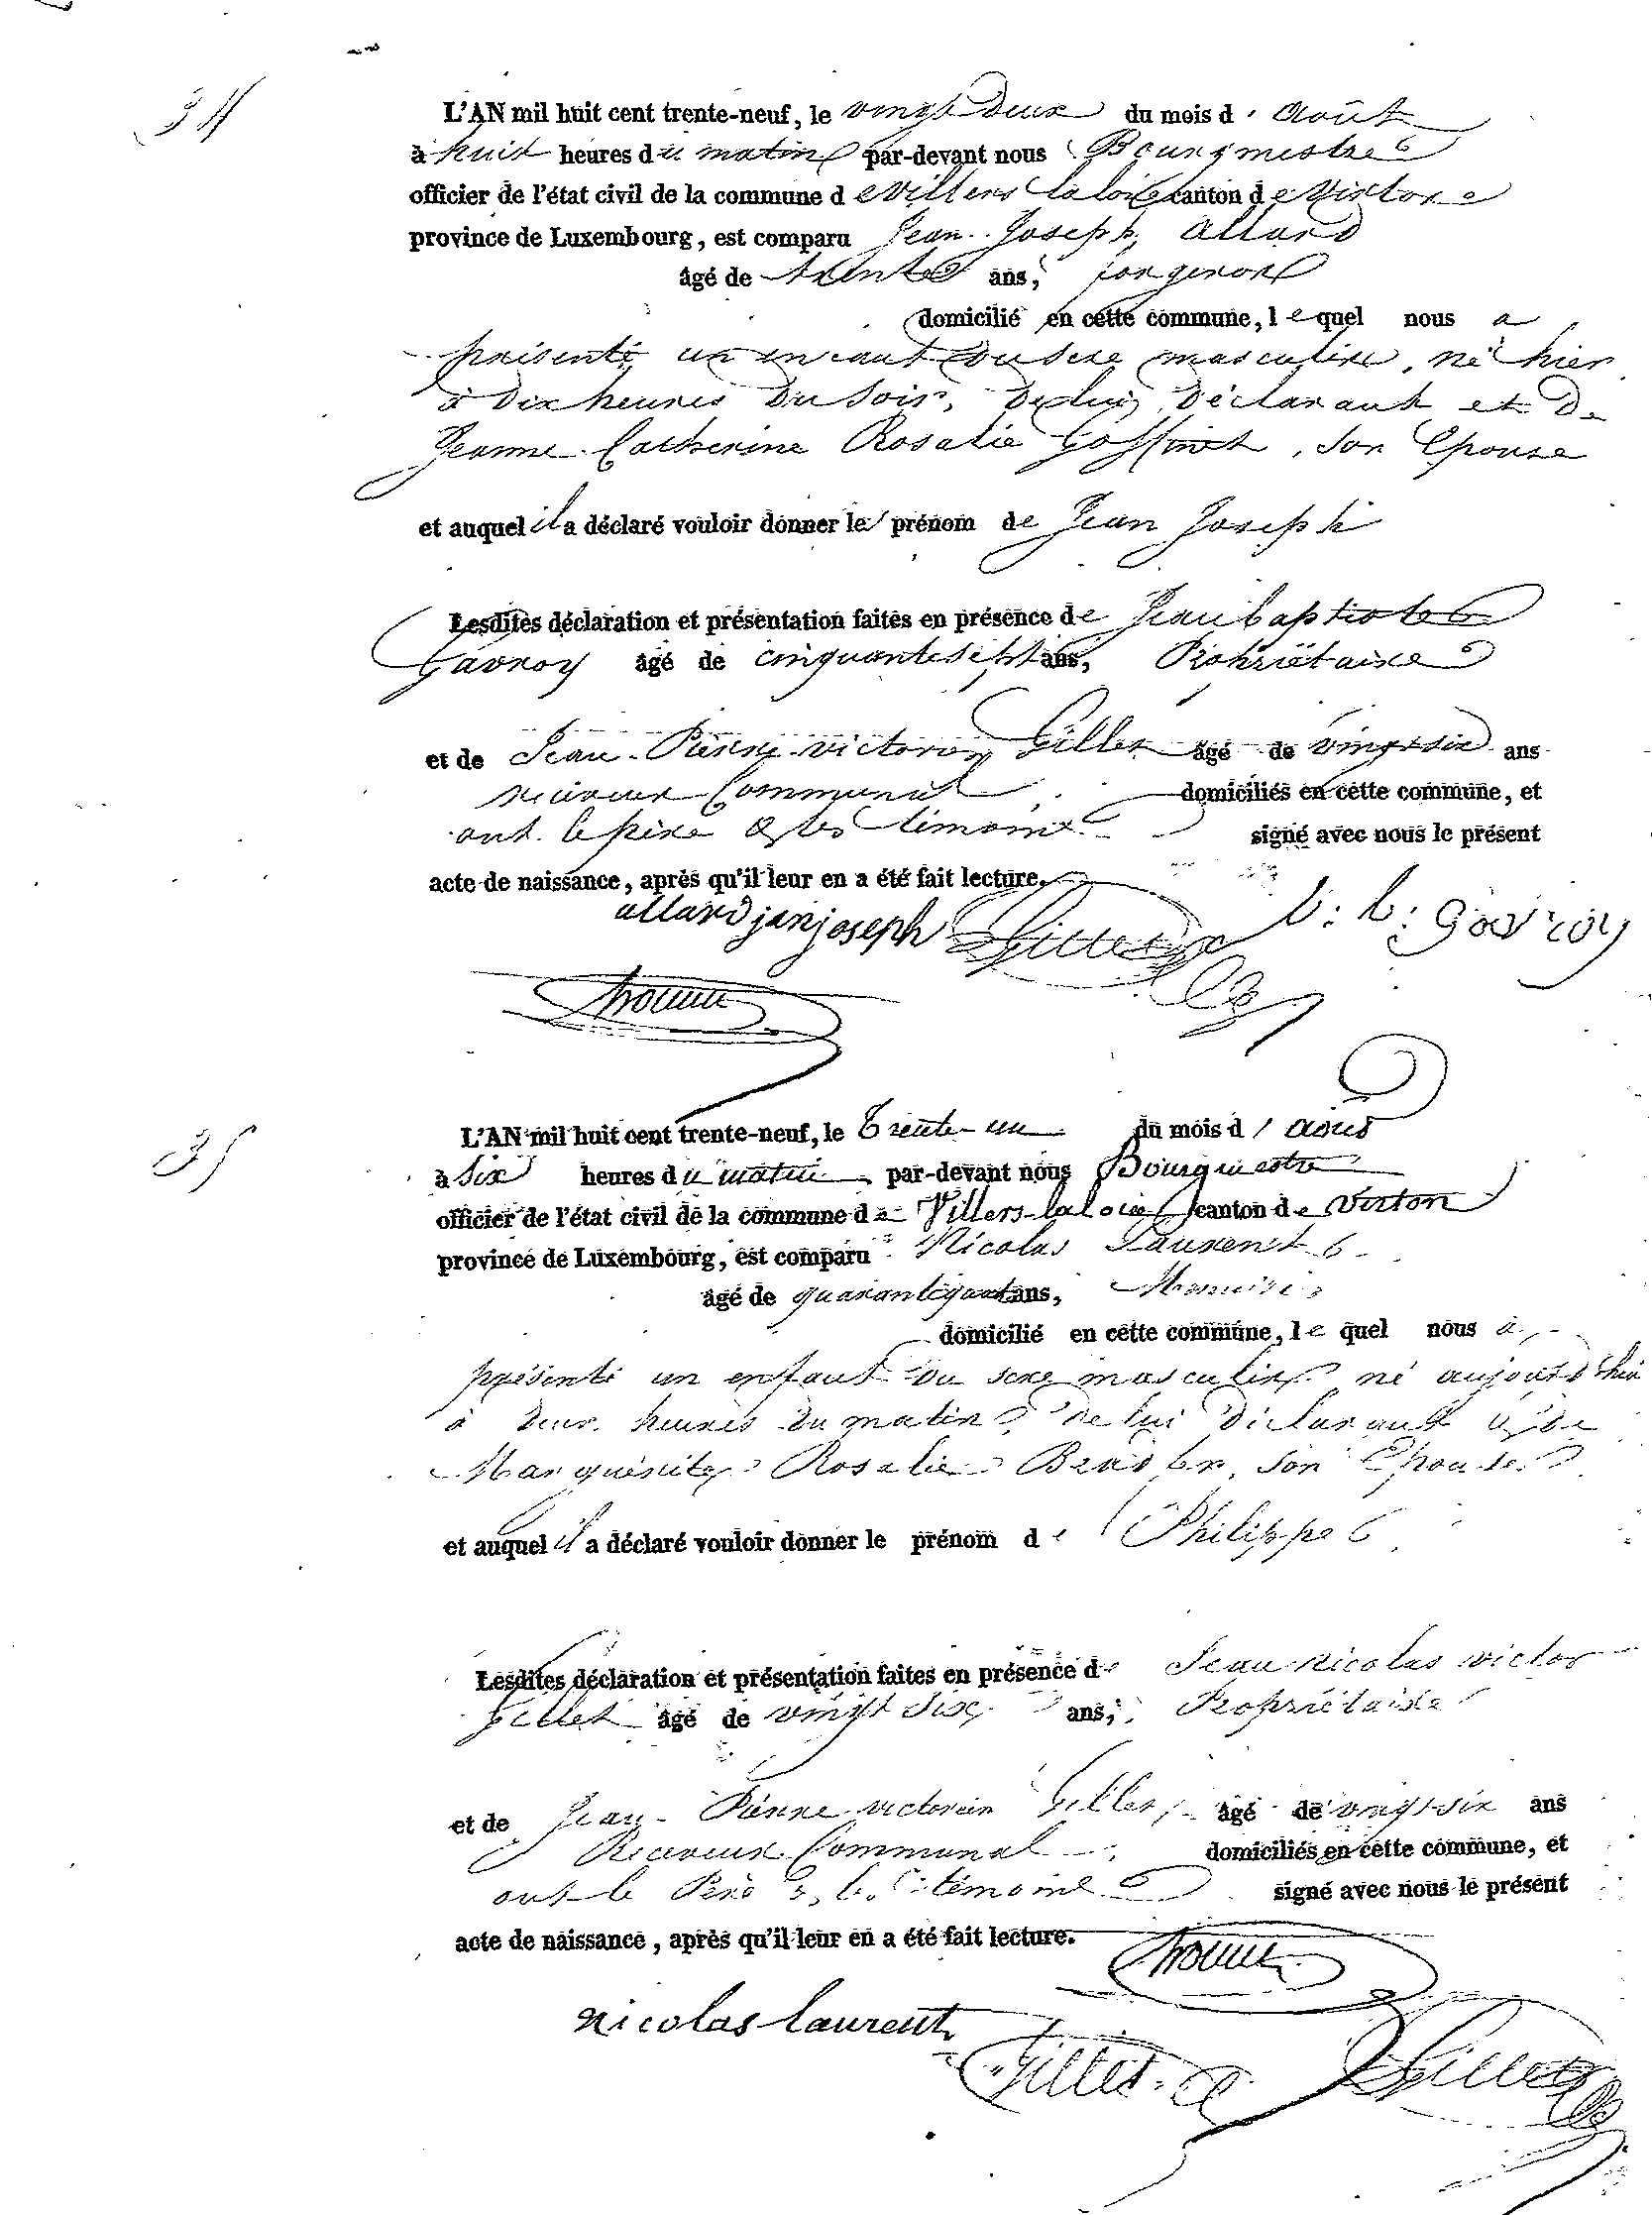 34
L'AN mil huit cent trente-neuf, le vingt deux du mois d' Août
à huit heures du matin par-devant nous Bourgmestre
officier de l'état civil de la commune de Villers la loue canton de Virton
province de Luxembourg, est comparu Jean Joseph Allard
âgé de trente ans, forgeron
domicilié en cette commune, lequel nous a
présenté un enfant du sexe masculin, né hier
à dix heures du soir, de lui déclarant et de
Jeanne Catherine Rosalie Goffinet, son Epouse
et auquel il a déclaré vouloir donner le prénom de Jean Joseph
Lesdites déclaration et présentation faites en présence de Jean baptiste
Gavroy âgé de cinquante sept ans, Propriétaire
et de Jean Pierre victorin Gillet âgé de vingt six ans
receveur Communal domiciliés en cette commune, et
ont le père & les témoins signé avec nous le présent
acte de naissance, après qu'il leur en a été fait lecture.
allard jan joseph Gillet b: gavroy
35
L'AN mil huit cent trente-neuf, le Trente-un du mois d' août
à six heures du matin par-devant nous Bourgmestre
officier de l'état civil de la commune de Villers-la loue canton de Virton
province de Luxembourg, est comparu Nicolas Laurent
âgé de ans,
domicilié en cette commune, le quel nous a
présenté un enfant du sexe masculin né aujourd'hui
à deux heures du matin de lui déclarant & de
Marguérite Rosalie son Epouse
et auquel il a déclaré vouloir donner le prénom de Philippe
Lesdites déclaration et présentation faites en présence de Jean nicolas victor
Gillet âgé de vingt six ans, Propriétaire
et de Jean Pierre victorin Gillet, âgé de vingt-six ans
Receveur Communal domiciliés en cette commune, et
ont le Père & les témoins signé avec nous le présent
acte de naissance, après qu'il leur en a été fait lecture.
nicolas laurent
Gillet Gillet